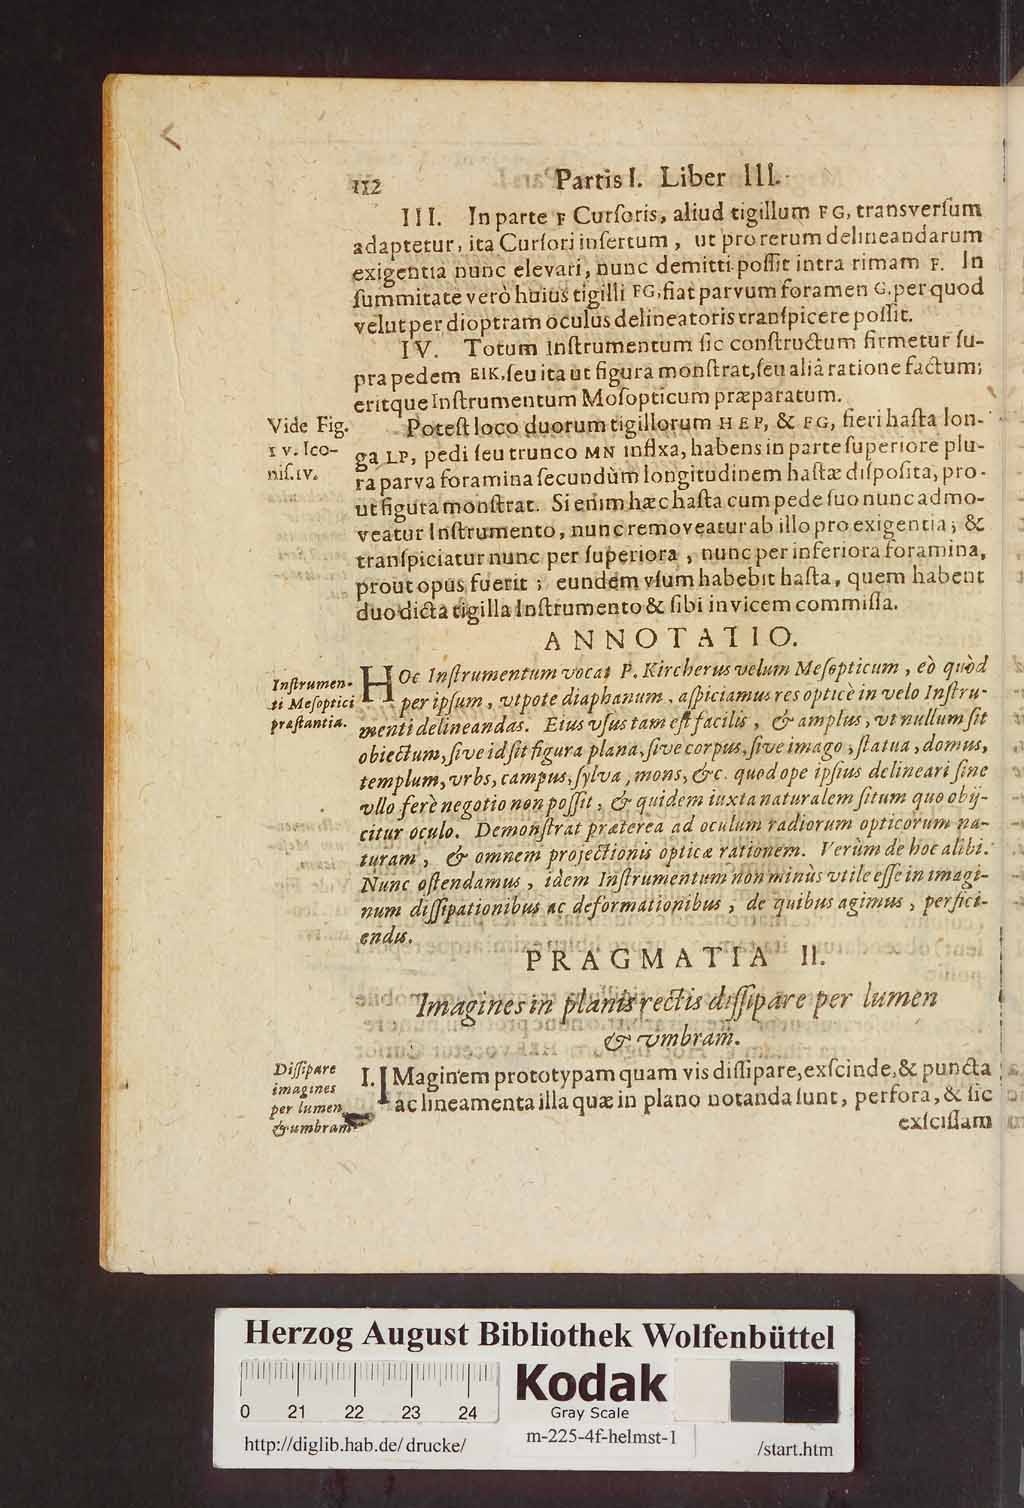 112 Partis I. Liber III.
III. In parte F Curſoris, aliud tigillum FG, transverſum
adaptetur, ita Curſori inſertum, ut pro rerum delineandarum
exigentia nunc elevari, nunc demitti poſſit intra rimam F. In
ſummitate verò huius tigilli FG, fiat parvum foramen G, per quod
velut per dioptram oculus delineatoris tranſpicere poſſit.
IV. Totum Inſtrumentum ſic conſtructum firmetur ſu-
pra pedem EIK, ſeu ita ut figura monſtrat, ſeu aliâ ratione factum;
eritque Inſtrumentum Moſopticum præparatum.
Vide Fig.
IV. Ico-
niſ. IV.
Poteſt loco duorum tigillorum HEP, & FG, fieri haſta lon-
ga LP, pedi ſeu trunco MN infixa, habens in parte ſuperiore plu-
ra parva foramina ſecundùm longitudinem haſtæ diſpoſita, pro-
ut figura monſtrat. Si enim hæc haſta cum pede ſuo nunc admo-
veatur Inſtrumento, nunc removeatur ab illo pro exigentia; &
tranſpiciatur nunc per ſuperiora, nunc per inferiora foramina,
prout opus fuerit; eundem vſum habebit haſta, quem habent
duo dicta tigilla Inſtrumento & ſibi invicem commiſſa.
ANNOTATIO.
Inſtrumen-
ti Meſoptici
præſtantia.
HOc Inſtrumentum vocat P. Kircherus velum Meſopticum, eò quòd
per ipſum, vtpote diaphanum, aſpiciamus res opticè in velo Inſtru-
menti delineandas. Eius vſus tam eſt facilis, & amplus, vt nullum ſit
obiectum, ſive id ſit figura plana, ſive corpus, ſive imago, ſtatua, domus,
templum, vrbs, campus, ſylva, mons, &c. quod ope ipſius delineari ſine
vllo ferè negotio non poſſit, & quidem iuxta naturalem ſitum quo obij-
citur oculo. Demonſtrat præterea ad oculum radiorum opticorum na-
turam, & omnem projectionis opticæ rationem. Verùm de hoc alibi.
Nunc oſtendamus, idem Inſtrumentum non minùs vtile eſſe in imagi-
num diſſipationibus ac deformationibus, de quibus agimus, perfici-
endis.
PRAGMATIA II.
Imagines in planis rectis diſſipare per lumen
& vmbram.
Diſſipare
imagines
per lumen
& umbram.
I. IMaginem prototypam quam vis diſſipare, exſcinde, & puncta
ac lineamenta illa quæ in plano notanda ſunt, perfora, & ſic
exſciſſam
Herzog August Bibliothek Wolfenbüttel
Kodak
Gray Scale
0 21 22 23 24
http://diglib.hab.de/drucke/ m-225-4f-helmst-1 /start.htm